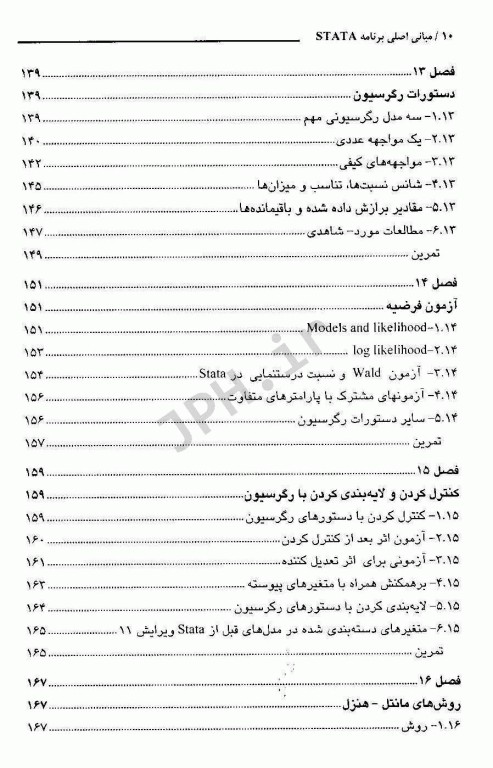 ۱۰ / مبانی اصلی برنامه STATA
فصل ۱۳ ........ ۱۳۹
دستورات رگرسیون ........ ۱۳۹
۱.۱۳- سه مدل رگرسیونی مهم ........ ۱۳۹
۲.۱۳- یک مواجهه عددی ........ ۱۴۰
۳.۱۳- مواجهه‌های کیفی ........ ۱۴۲
۴.۱۳- شانس نسبت‌ها، تناسب و میزان‌ها ........ ۱۴۵
۵.۱۳- مقادیر برازش داده شده و باقیمانده‌ها ........ ۱۴۶
۶.۱۳- مطالعات مورد- شاهدی ........ ۱۴۷
تمرین ........ ۱۴۹
فصل ۱۴ ........ ۱۵۱
آزمون فرضیه ........ ۱۵۱
۱.۱۴- Models and likelihood ........ ۱۵۱
۲.۱۴- log likelihood ........ ۱۵۳
۳.۱۴- آزمون Wald و نسبت درستنمایی در Stata ........ ۱۵۴
۴.۱۴- آزمونهای مشترک با پارامترهای متفاوت ........ ۱۵۶
۵.۱۴- سایر دستورات رگرسیون ........ ۱۵۶
تمرین ........ ۱۵۷
فصل ۱۵ ........ ۱۵۹
کنترل کردن و لایه‌بندی کردن با رگرسیون ........ ۱۵۹
۱.۱۵- کنترل کردن با دستورهای رگرسیون ........ ۱۵۹
۲.۱۵- آزمون اثر بعد از کنترل کردن ........ ۱۶۰
۳.۱۵- آزمونی برای اثر تعدیل کننده ........ ۱۶۱
۴.۱۵- برهمکنش همراه با متغیرهای پیوسته ........ ۱۶۳
۵.۱۵- لایه‌بندی کردن با دستورهای رکرسیون ........ ۱۶۴
۶.۱۵- متغیرهای دسته‌بندی شده در مدل‌های قبل از Stata ویرایش ۱۱ ........ ۱۶۵
تمرین ........ ۱۶۵
فصل ۱۶ ........ ۱۶۷
روش‌های مانتل - هنزل ........ ۱۶۷
۱.۱۶- روش ........ ۱۶۷
JPH.ir